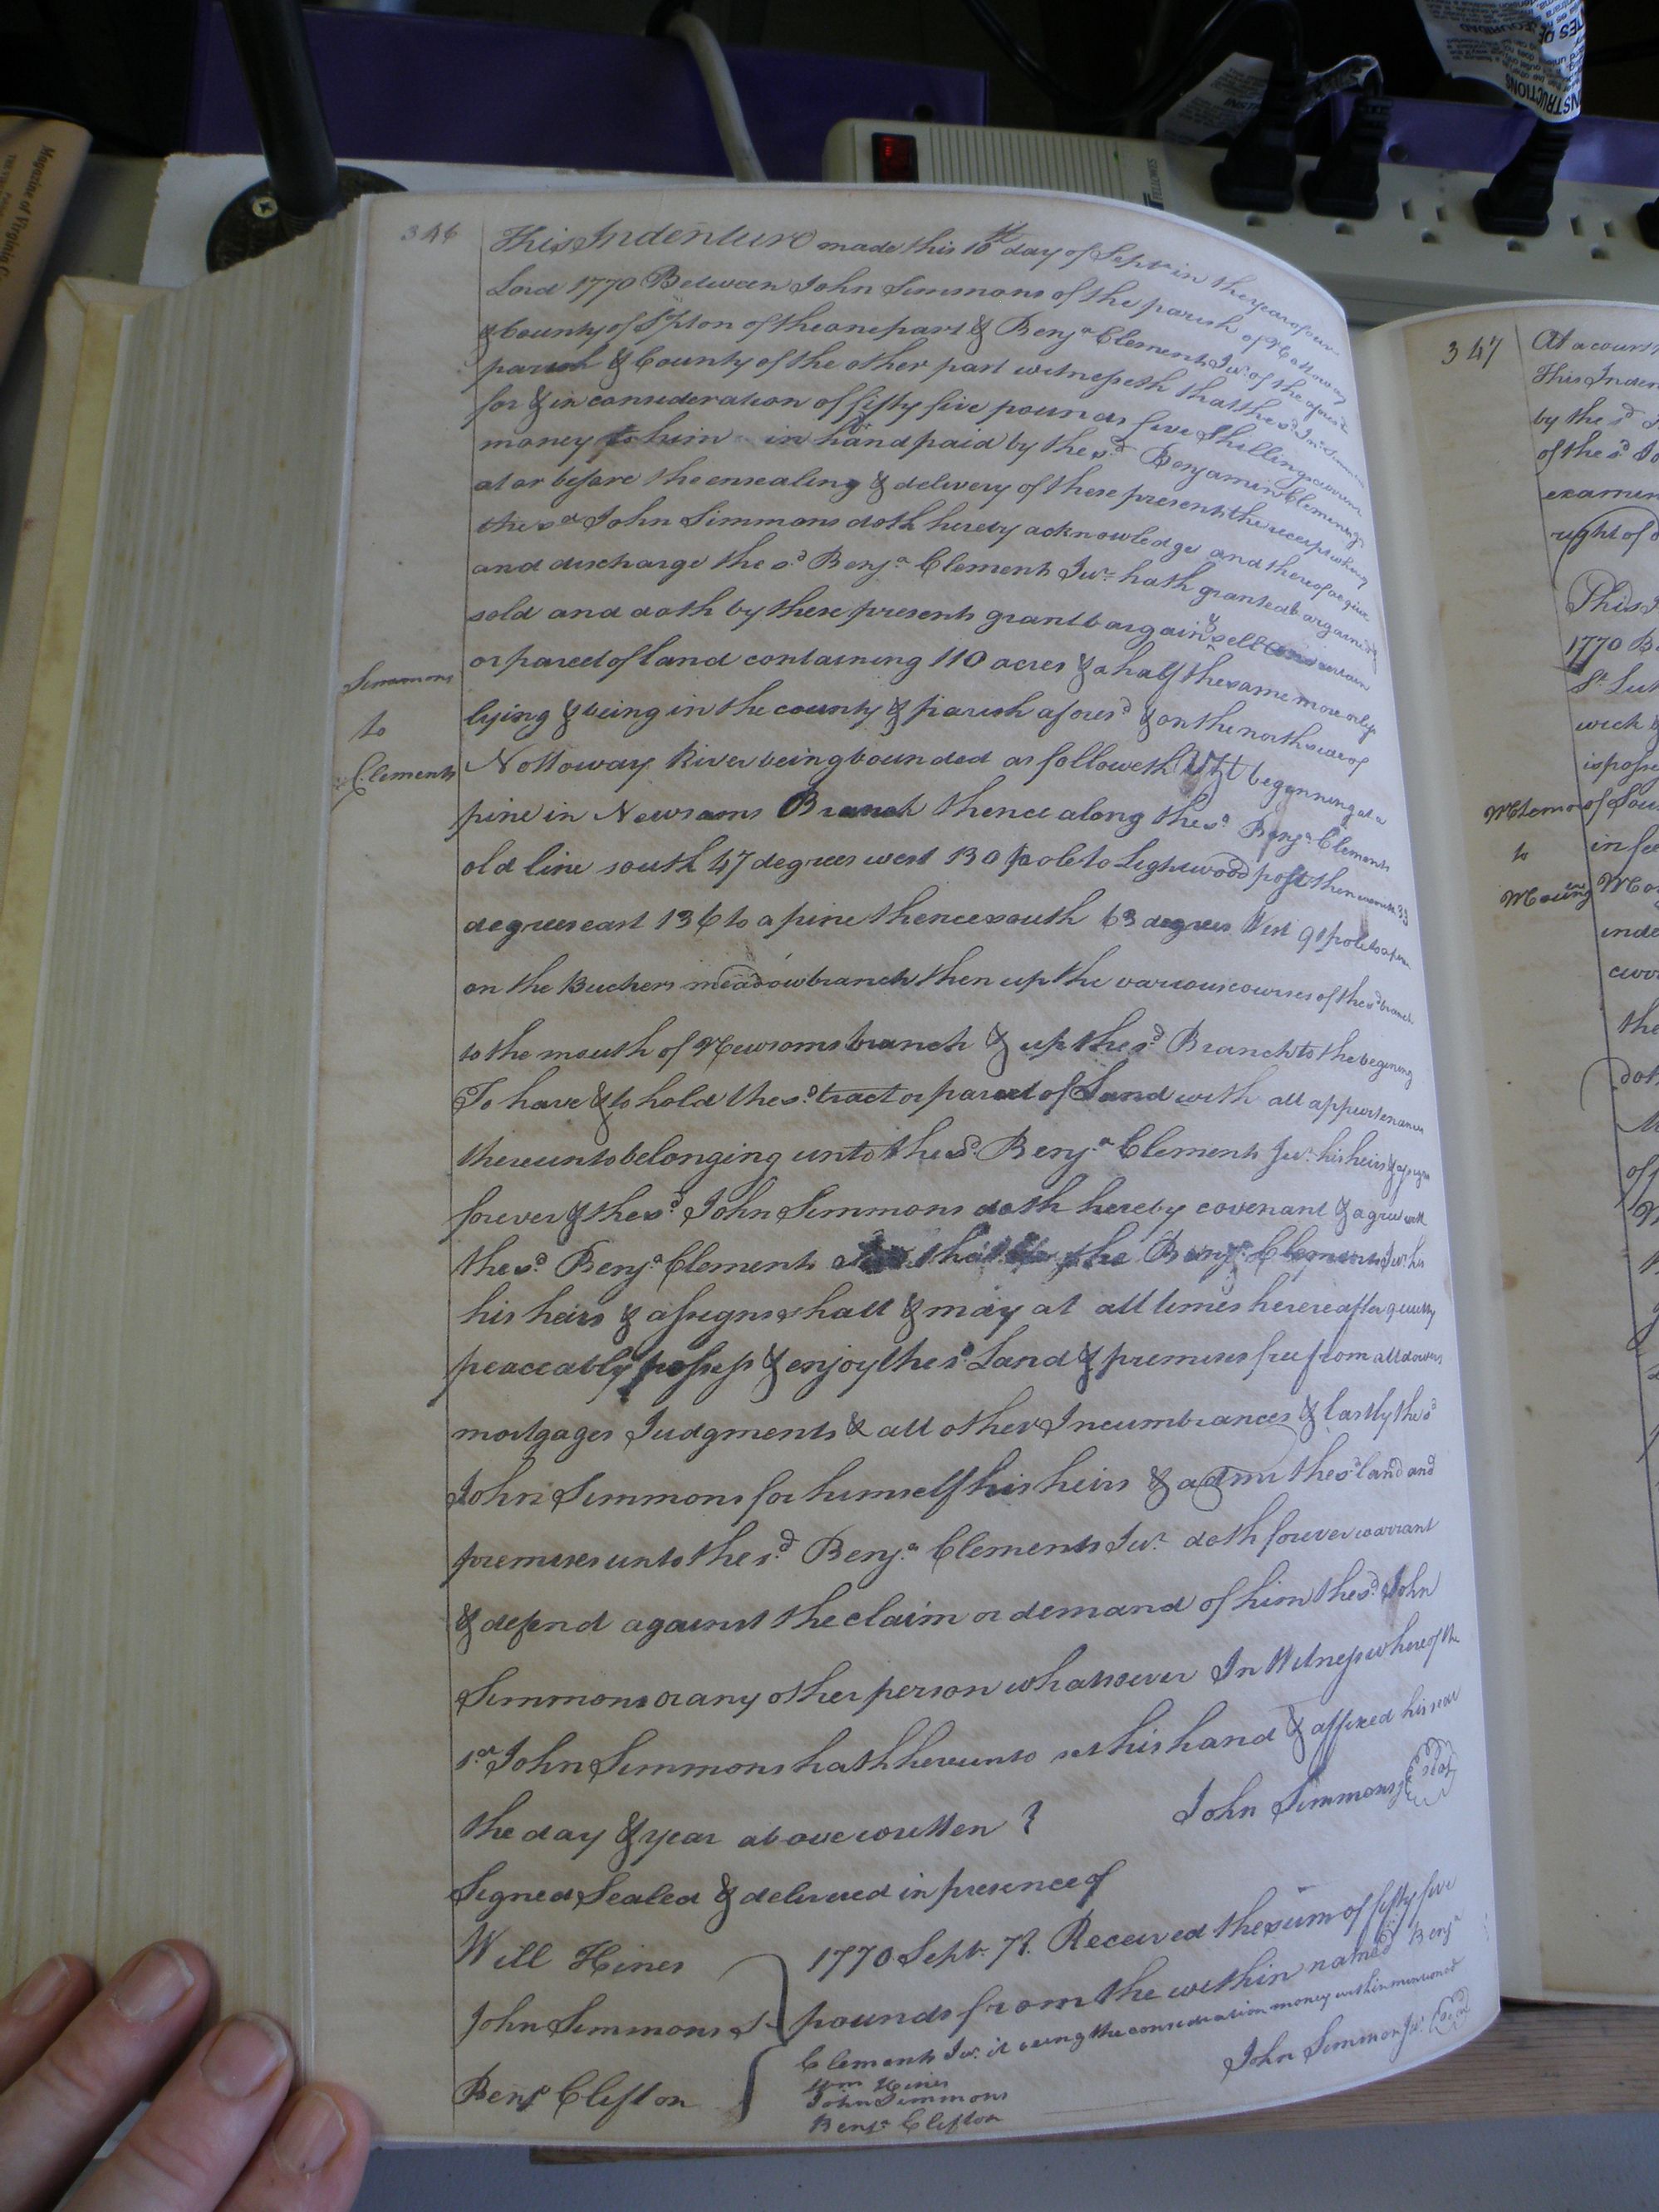 346
This Indenture made this 10th day of Septr in the year of our
Lord 1770 Between John Simmons of the parish of Nottoway
& County of S'pton of the one part & Benja Clements Jur. of the aforesd
parish & County of the other part witnesseth that the sd. Jno. Simmons
for & in consideration of fifty five pounds five shillings current
money to him in hand paid by the sd. Benjamin Clements Jr
at or before the ensealing & delivery of these presents the receipt whereof
the sd. John Simmons doth hereby acknowledge and thereof acquit
and discharge the sd. Benja. Clements Jur. hath granted bargained &
sold and doth by these presents grant bargain & sell certain
or parcel of land containing 110 acres & a half the same more or less
lying & being in the county & parish aforesd. & on the north side of
Nottoway River being bounded as followeth Vizt beginning at a
pine in Newsoms Branch thence along the sd. Benja. Clements
old line south 47 degrees west 130 pole to Lightwood post then south 33
degrees east 136 to a pine thence south 63 degrees West 98 pole to a pine
on the Buchers meadow branch then up the various courses of the sd branch
to the mouth of Newsoms branch & up the sd. Branch to the begening
To have & to hold the sd. tract or parcel of Land with all appurtenances
thereunto belonging unto the sd. Benja. Clements Jur. his heirs & assigns
forever & the sd. John Simmons doth hereby covenant & agree with
the sd. Benja. Clements that the Benja. Clements Jur. his
his heirs & assigns shall & may at all times herereafter quietly
peaceably possess & enjoy the sd. Land & premises free from all dowers
mortgages Judgments & all other Incumbrances & lastly the sd
John Simmons for himself his heirs & admr the sd land and
premises unto the sd. Benja. Clements Jur. doth forever warrant
& defend against the claim or demand of him the sd. John
Simmons or any other person whatsoever In Witness whereof the
sd. John Simmons hath hereunto set his hand & affixed his seal
the day & year above written
John Simmons Jr Seal
Signed Sealed & delivered in presence of
Will Hines
John Simmons S
Benja Clifton
1770 Septr. 7th. Received the sum of fifty five
pounds from the within named Benja
Clements Jur. it being the consideration money within mentioned
Wm Hines
John Simmons
Benja. Clifton
John Simmons Jr. Seal
Simmons
to
Clements
347
At a court
This Inden
by the sd. J
of the sd. Jo
examin
right of d
This I
1770 B
St. Luk
wick &
is posse
of Sou
in fee
to
inde
the
doth
of
Magazine of Virginia
FELLOWS
INSTRUCTIONS